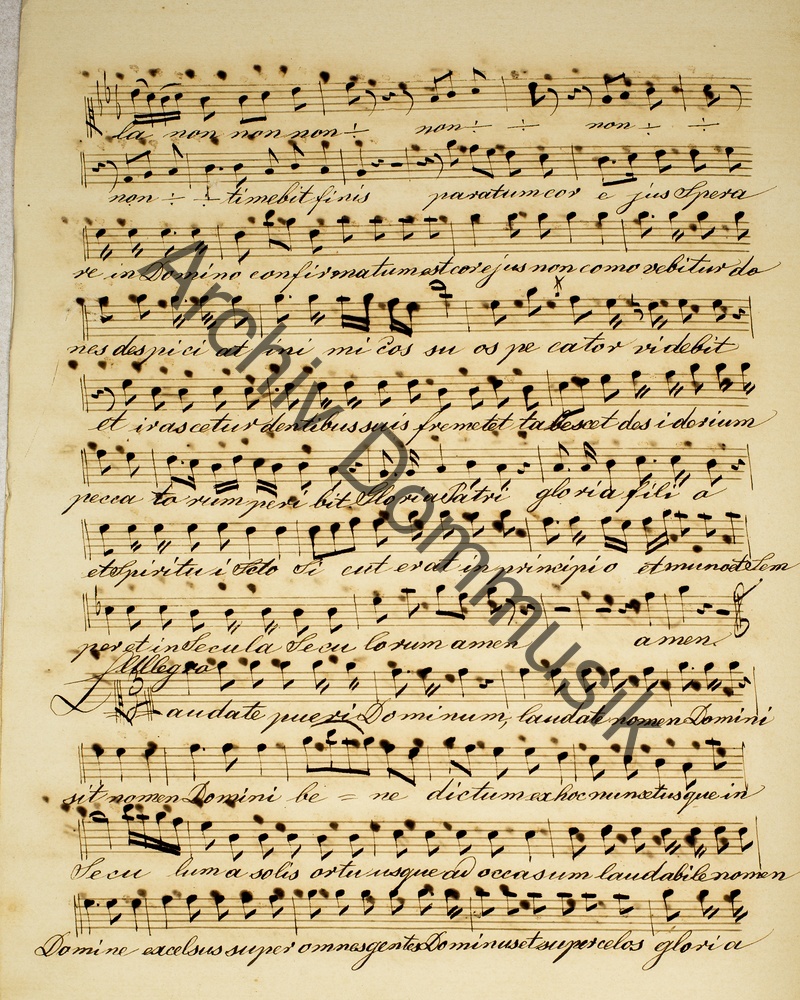 la non non non non ÷ non ÷ ÷ non ÷ ÷
non ÷ ÷ timebit finis paratum cor e jus Spera
re in Domino confirmatum est cor ejus non como vebitur do
nes despici at ini mi cos su os pe cator videbit
et irascetur dentibus suis fremet et tabescet des iderium
pecca to rum peri bit Gloria Patri gloria fili o
et Spiritu i Sto Si cut erat in principi o et nunc et Sem
per et in Secula Secu lorum amen amen.
Allegro
Laudate pueri Dominum, laudate nomen Domini
sit nomen Domini be = ne dictum ex hoc nunc et usque in
Secu lum a solis ortu usque ad occasum laudabile nomen
Domine excelsus super omnes gentes Dominus et super celos glori a
Archiv Dommusik